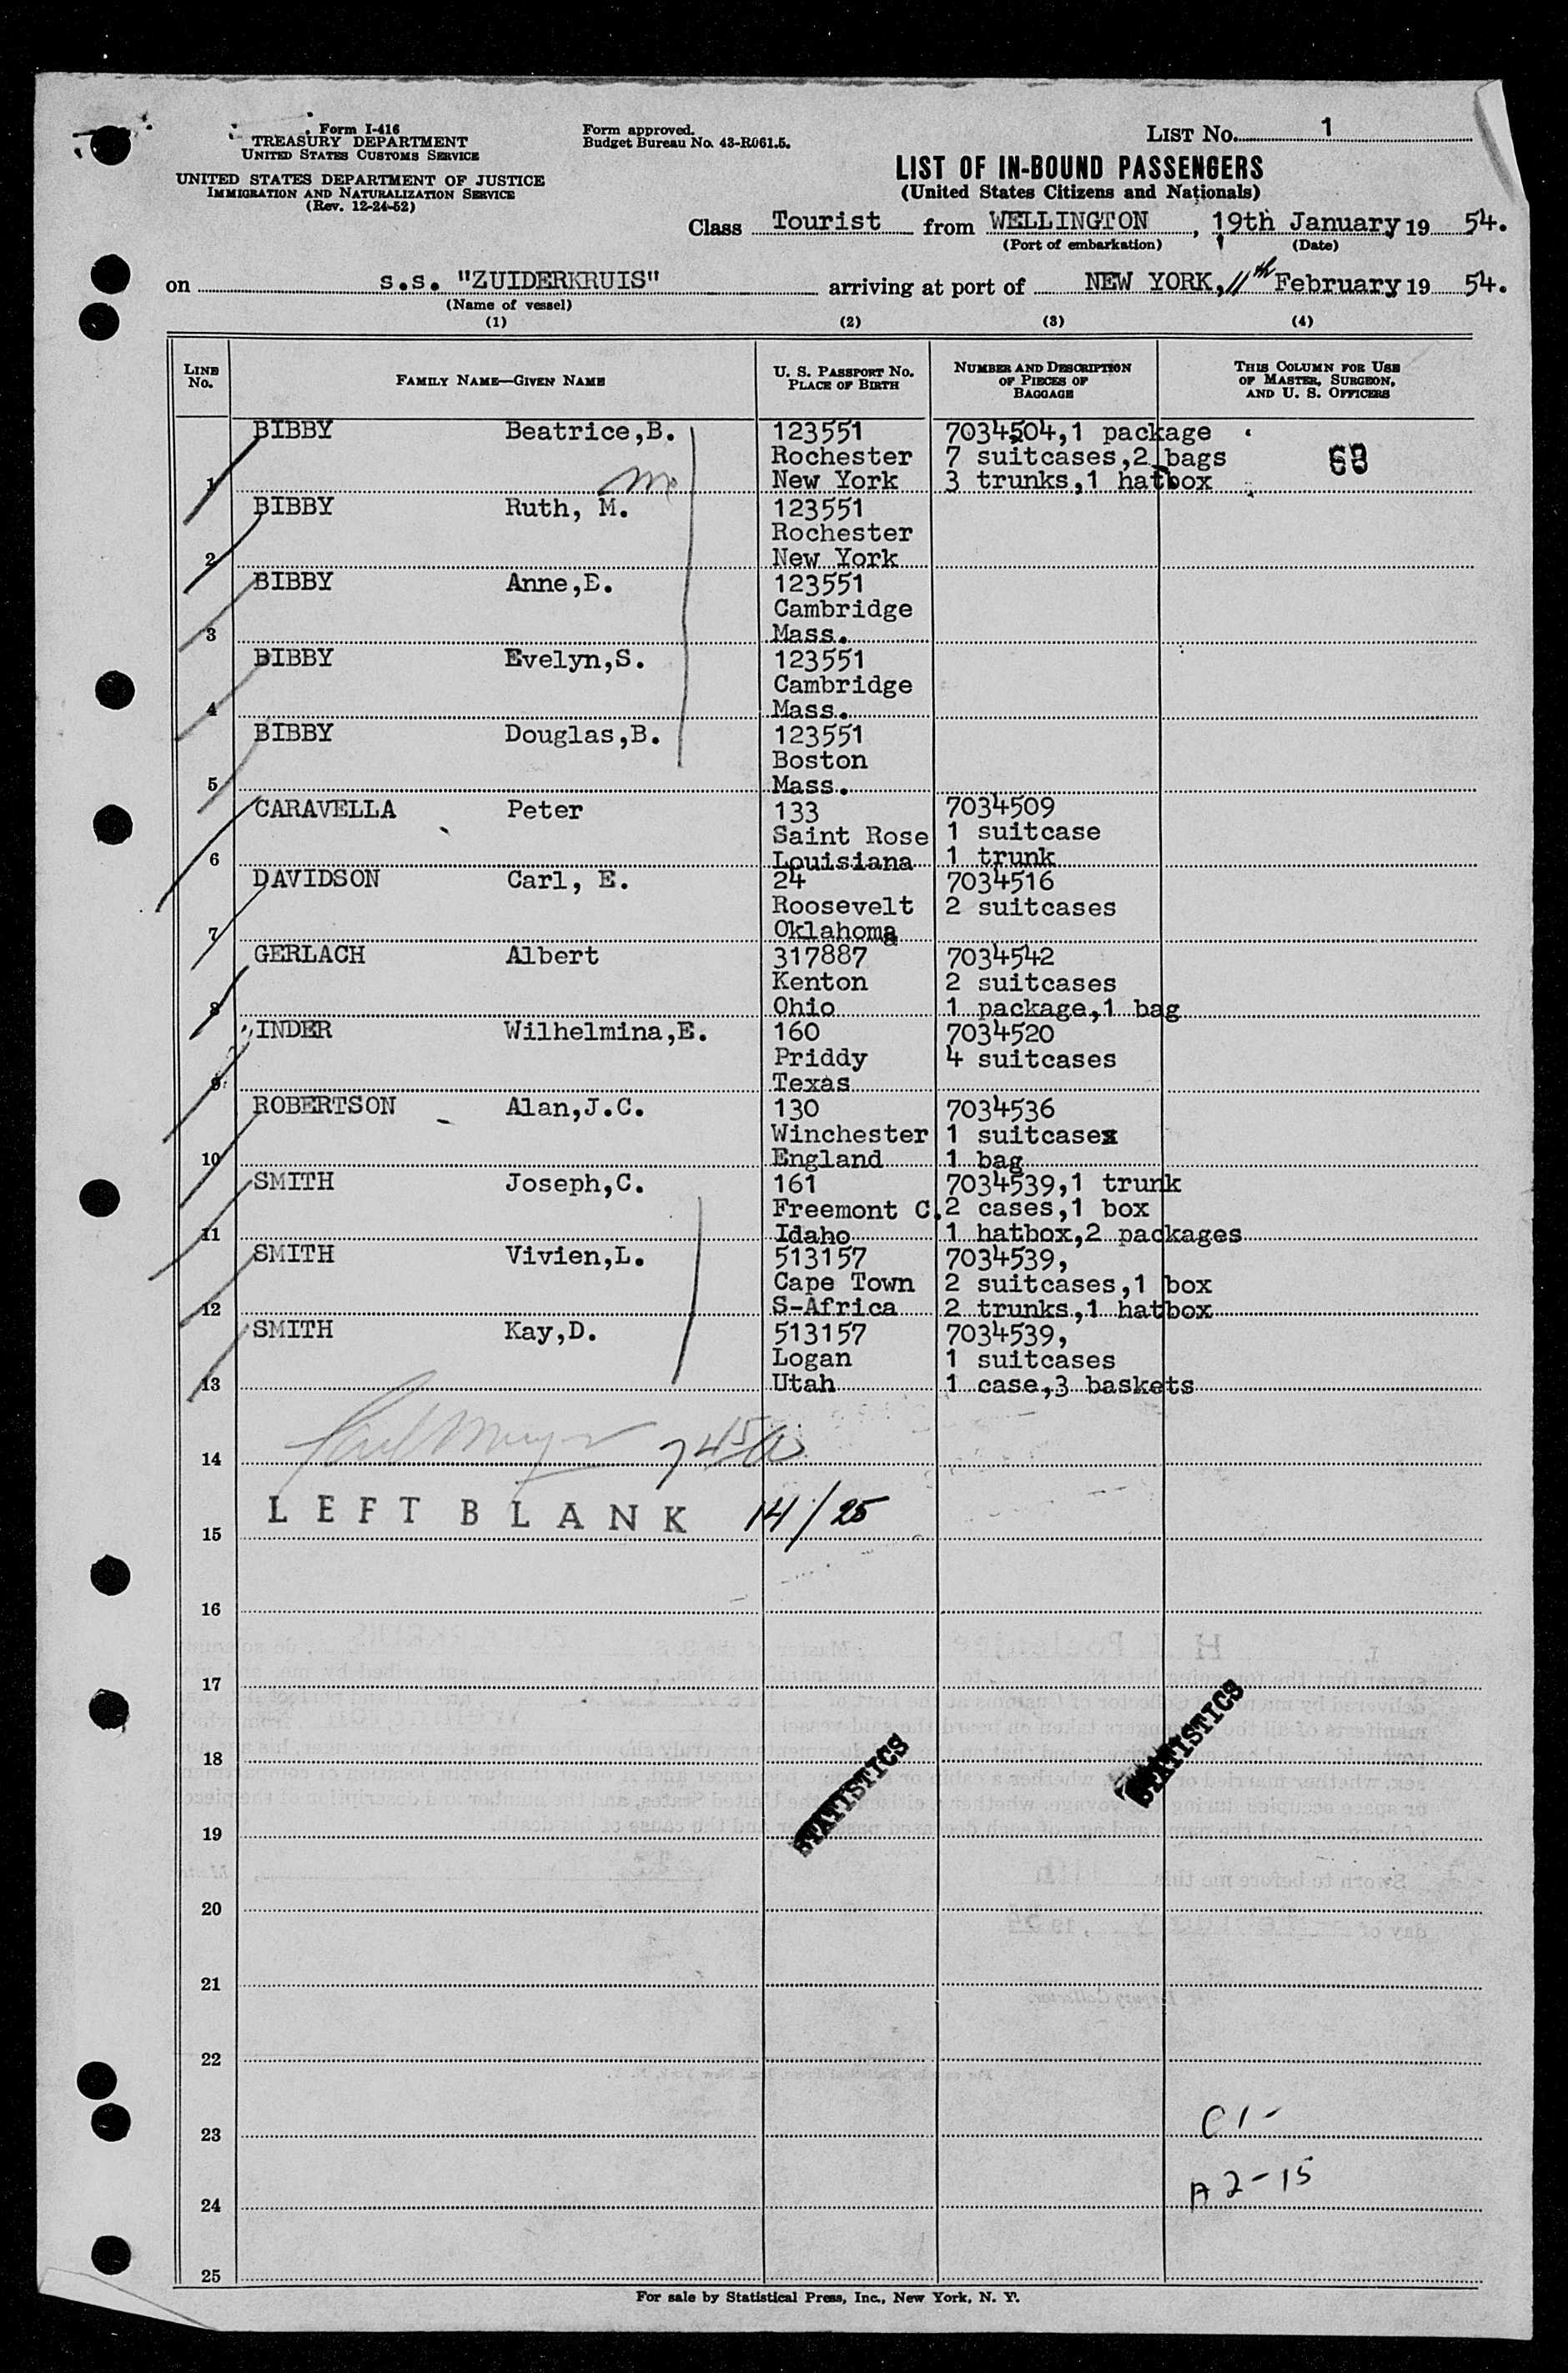 Form I-416
TREASURY DEPARTMENT
UNITED STATES CUSTOMS SERVICE
UNITED STATES DEPARTMENT OF JUSTICE
IMMIGRATION AND NATURALIZATION SERVICE
(Rev. 12-24-52)
Form approved.
Budget Bureau No. 43-R061.5.
LIST No. 1
LIST OF IN-BOUND PASSENGERS
(United States Citizens and Nationals)
Class Tourist from WELLINGTON, 19th January 19 54.
(Port of embarkation) (Date)
on s.s. "ZUIDERKRUIS" arriving at port of NEW YORK, 11th February 19 54.
(Name of vessel)
(1) (2) (3) (4)
LINE No. FAMILY NAME—GIVEN NAME U. S. PASSPORT No. PLACE OF BIRTH NUMBER AND DESCRIPTION OF PIECES OF BAGGAGE THIS COLUMN FOR USE OF MASTER, SURGEON, AND U. S. OFFICERS
BIBBY Beatrice,B. 123551 7034504,1 package
Rochester 7 suitcases,2 bags
1 New York 3 trunks,1 hatbox
BIBBY Ruth, M. 123551
Rochester
2 New York
BIBBY Anne,E. 123551
Cambridge
3 Mass.
BIBBY Evelyn,S. 123551
Cambridge
4 Mass.
BIBBY Douglas,B. 123551
Boston
5 Mass.
CARAVELLA Peter 133 7034509
Saint Rose 1 suitcase
6 Louisiana 1 trunk
DAVIDSON Carl, E. 24 7034516
Roosevelt 2 suitcases
7 Oklahoma
GERLACH Albert 317887 7034542
Kenton 2 suitcases
8 Ohio 1 package,1 bag
INDER Wilhelmina,E. 160 7034520
Priddy 4 suitcases
9 Texas
ROBERTSON Alan,J.C. 130 7034536
Winchester 1 suitcase
10 England 1 bag
SMITH Joseph,C. 161 7034539,1 trunk
Freemont C. 2 cases,1 box
11 Idaho 1 hatbox,2 packages
SMITH Vivien,L. 513157 7034539,
Cape Town 2 suitcases,1 box
12 S-Africa 2 trunks,1 hatbox
SMITH Kay,D. 513157 7034539,
Logan 1 suitcases
13 Utah 1 case,3 baskets
14
LEFT BLANK 14/25
15
16
17
STATISTICS
18
STATISTICS
19
20
21
22
C1-
23
A2-15
24
25
For sale by Statistical Press, Inc., New York, N. Y.